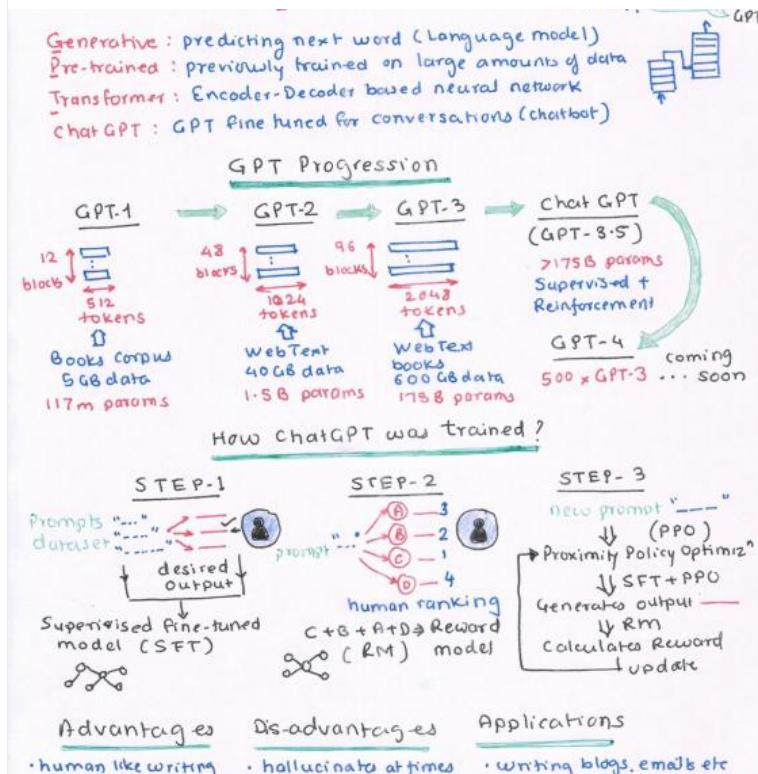 GPT
Generative : predicting next word (Language model)
Pre-trained : previously trained on large amounts of data
Transformer : Encoder-Decoder based neural network
Chat GPT : GPT fine tuned for conversations (chatbot)
GPT Progression
GPT-1
12
blocks
512
tokens
Books Corpus
5GB data
117m params
GPT-2
48
blocks
1024
tokens
WebText
40GB data
1.5B params
GPT-3
96
blocks
2048
tokens
WebText
books
600 GB data
175B params
Chat GPT
(GPT-3.5)
>175B params
Supervised +
Reinforcement
GPT-4
500 x GPT-3
coming
... soon
How ChatGPT was trained?
STEP-1
Prompts "---"
dataset "----"
"----"
desired
output
Supervised fine-tuned
model (SFT)
STEP-2
prompt "--"
A — 3
B — 2
C — 1
D — 4
human ranking
C+B+A+D → Reward
(RM) model
STEP-3
new prompt "----"
(PPO)
Proximity Policy Optimizⁿ
SFT+PPO
Generates output
RM
Calculates Reward
update
Advantages
· human like writing
Dis-advantages
· hallucinates at times
Applications
· writing blogs, emails etc